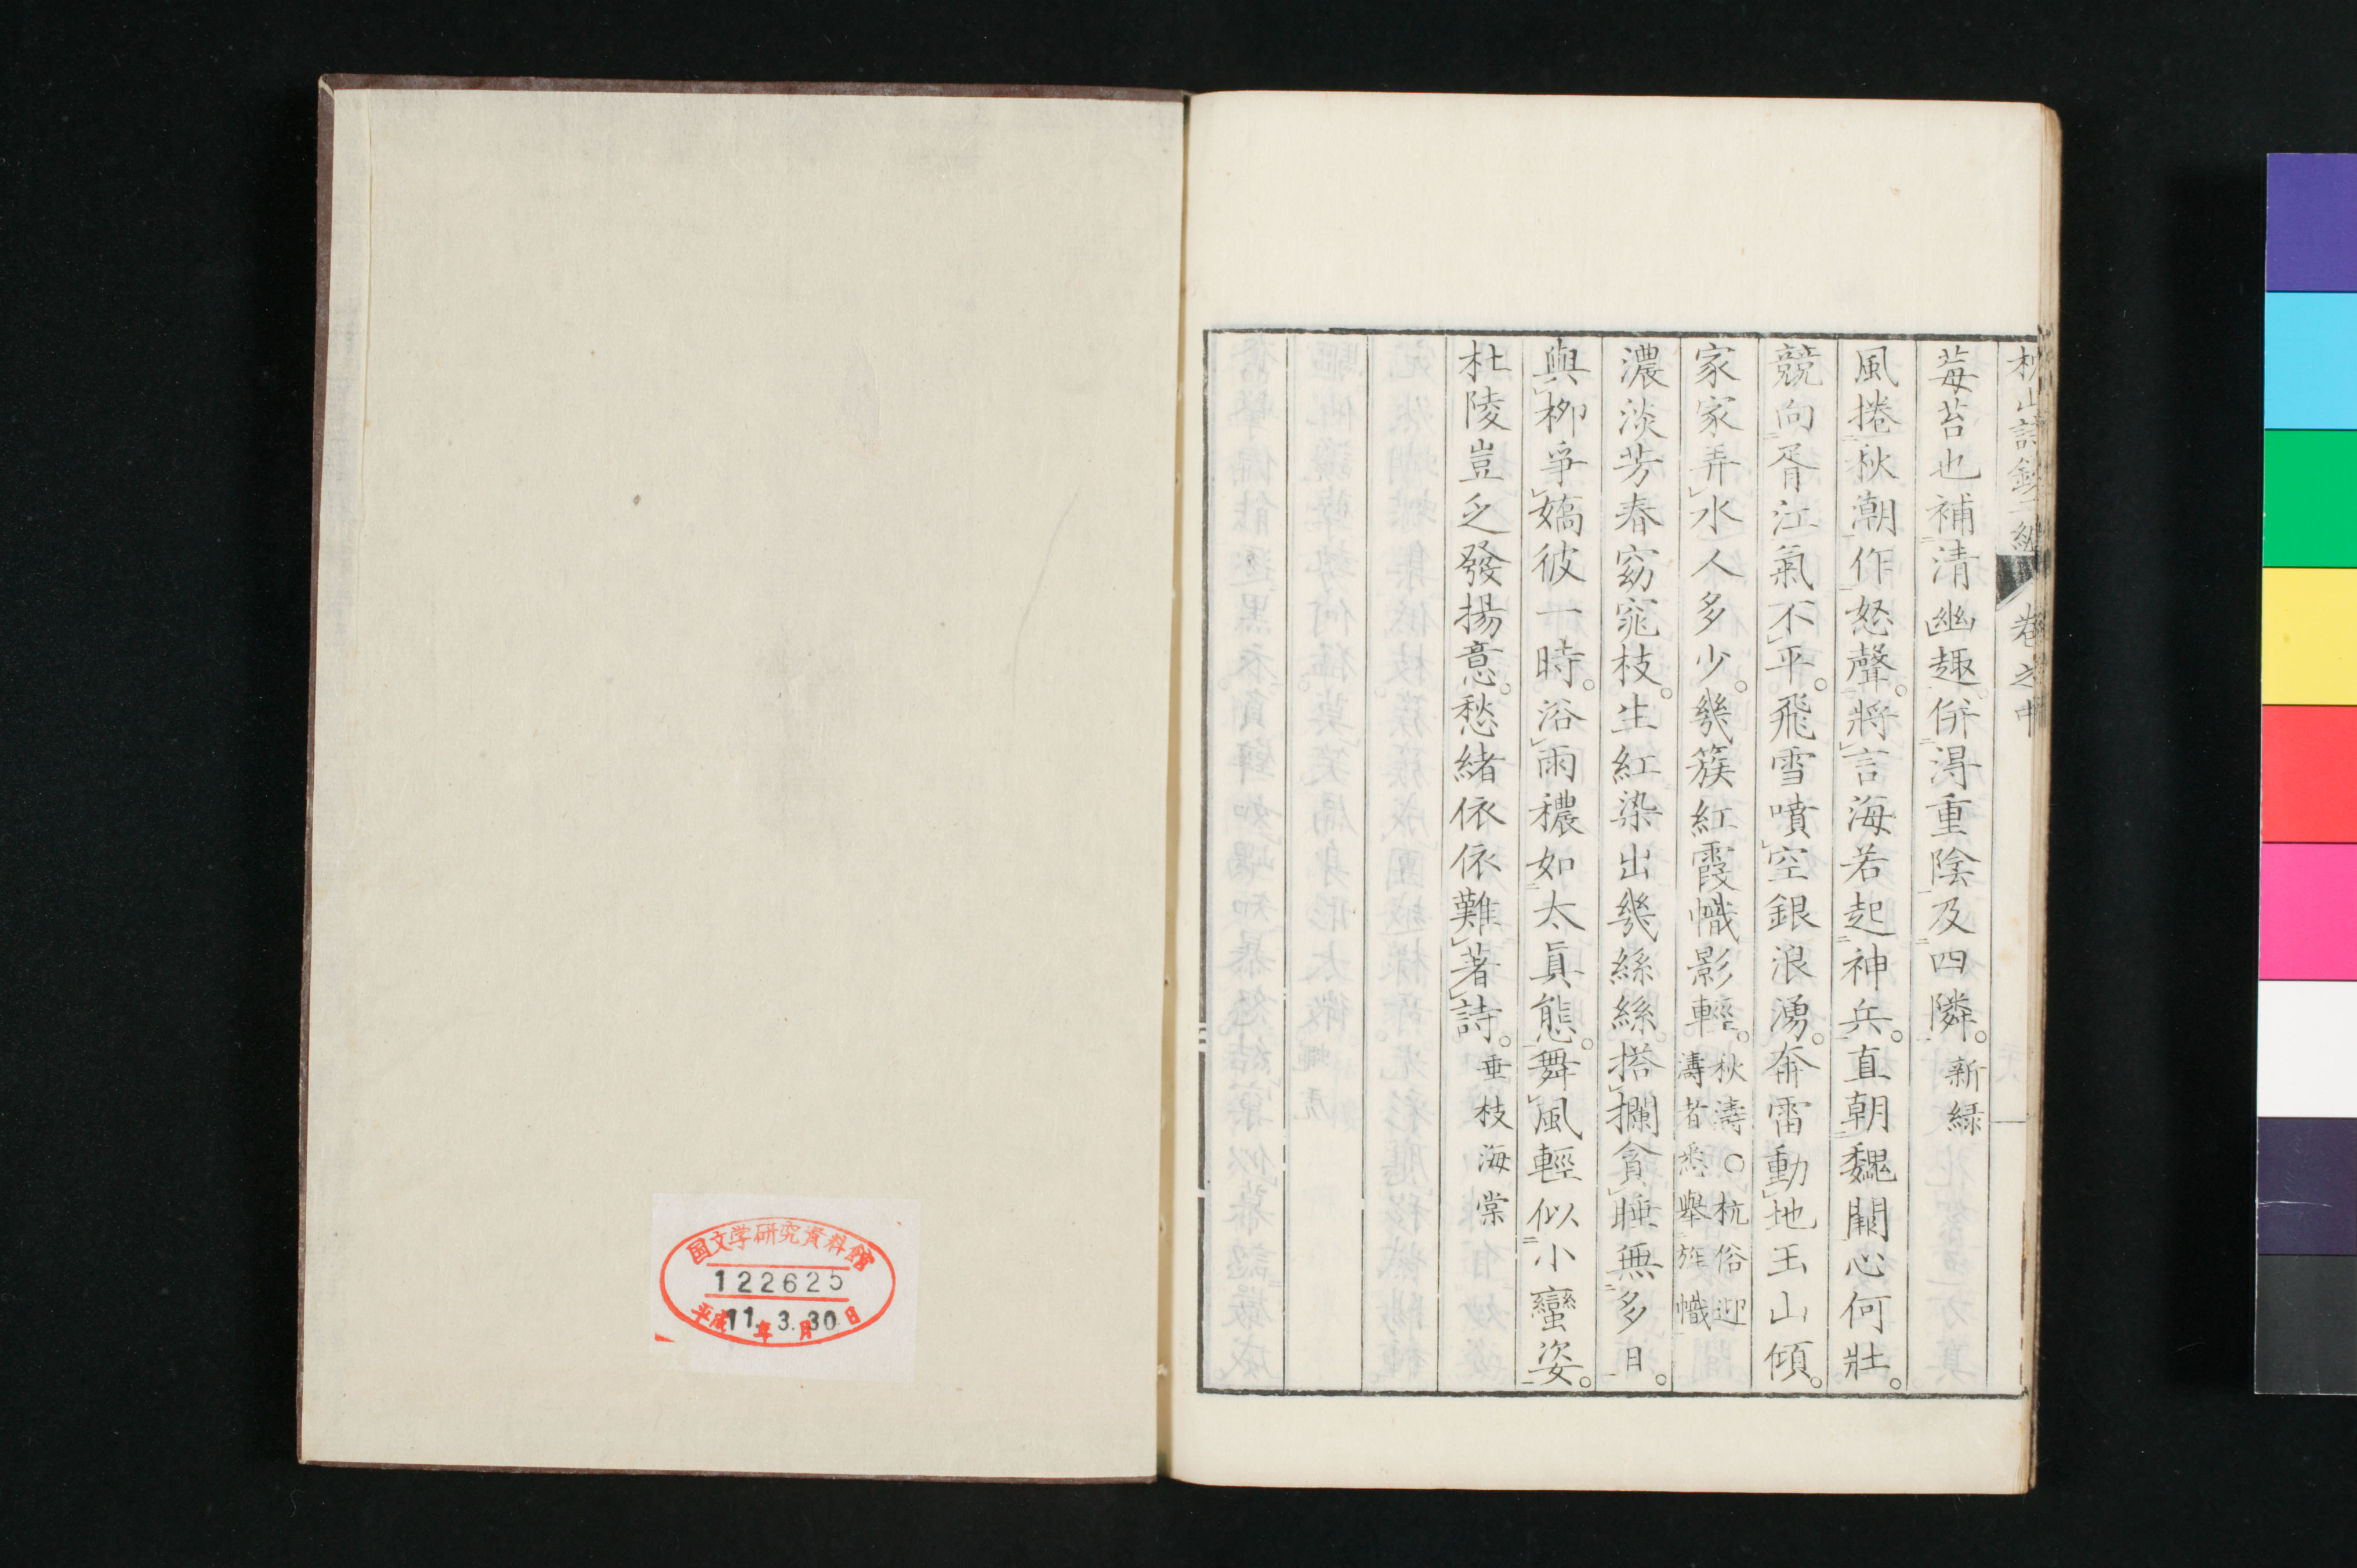 枕山詩鈔二編 卷之中
莓苔也補清幽趣併得重陰及四隣。新綠
風捲秋潮作怒聲。將言海若起神兵。直朝魏闕心何壯。
競向胥江氣不平。飛雪噴空銀浪湧。奔雷動地玉山傾。
家家弄水人多少。幾簇紅霞幟影輕。秋濤○杭俗迎
濤者悉舉旌幟
濃淡芳春窈窕枝。生紅染出幾絲絲。搭攔貪睡無多日。
與柳爭嬌彼一時。浴雨穠如太眞態。舞風輕似小蠻姿。
杜陵豈乏發揚意。愁緒依依難著詩。垂枝海棠
国文学研究資料館
122625
平成11年3月30日